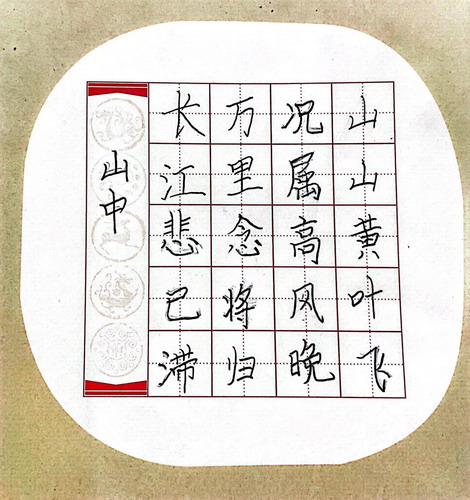 山中
长江悲已滞
万里念将归
况属高风晚
山山黄叶飞